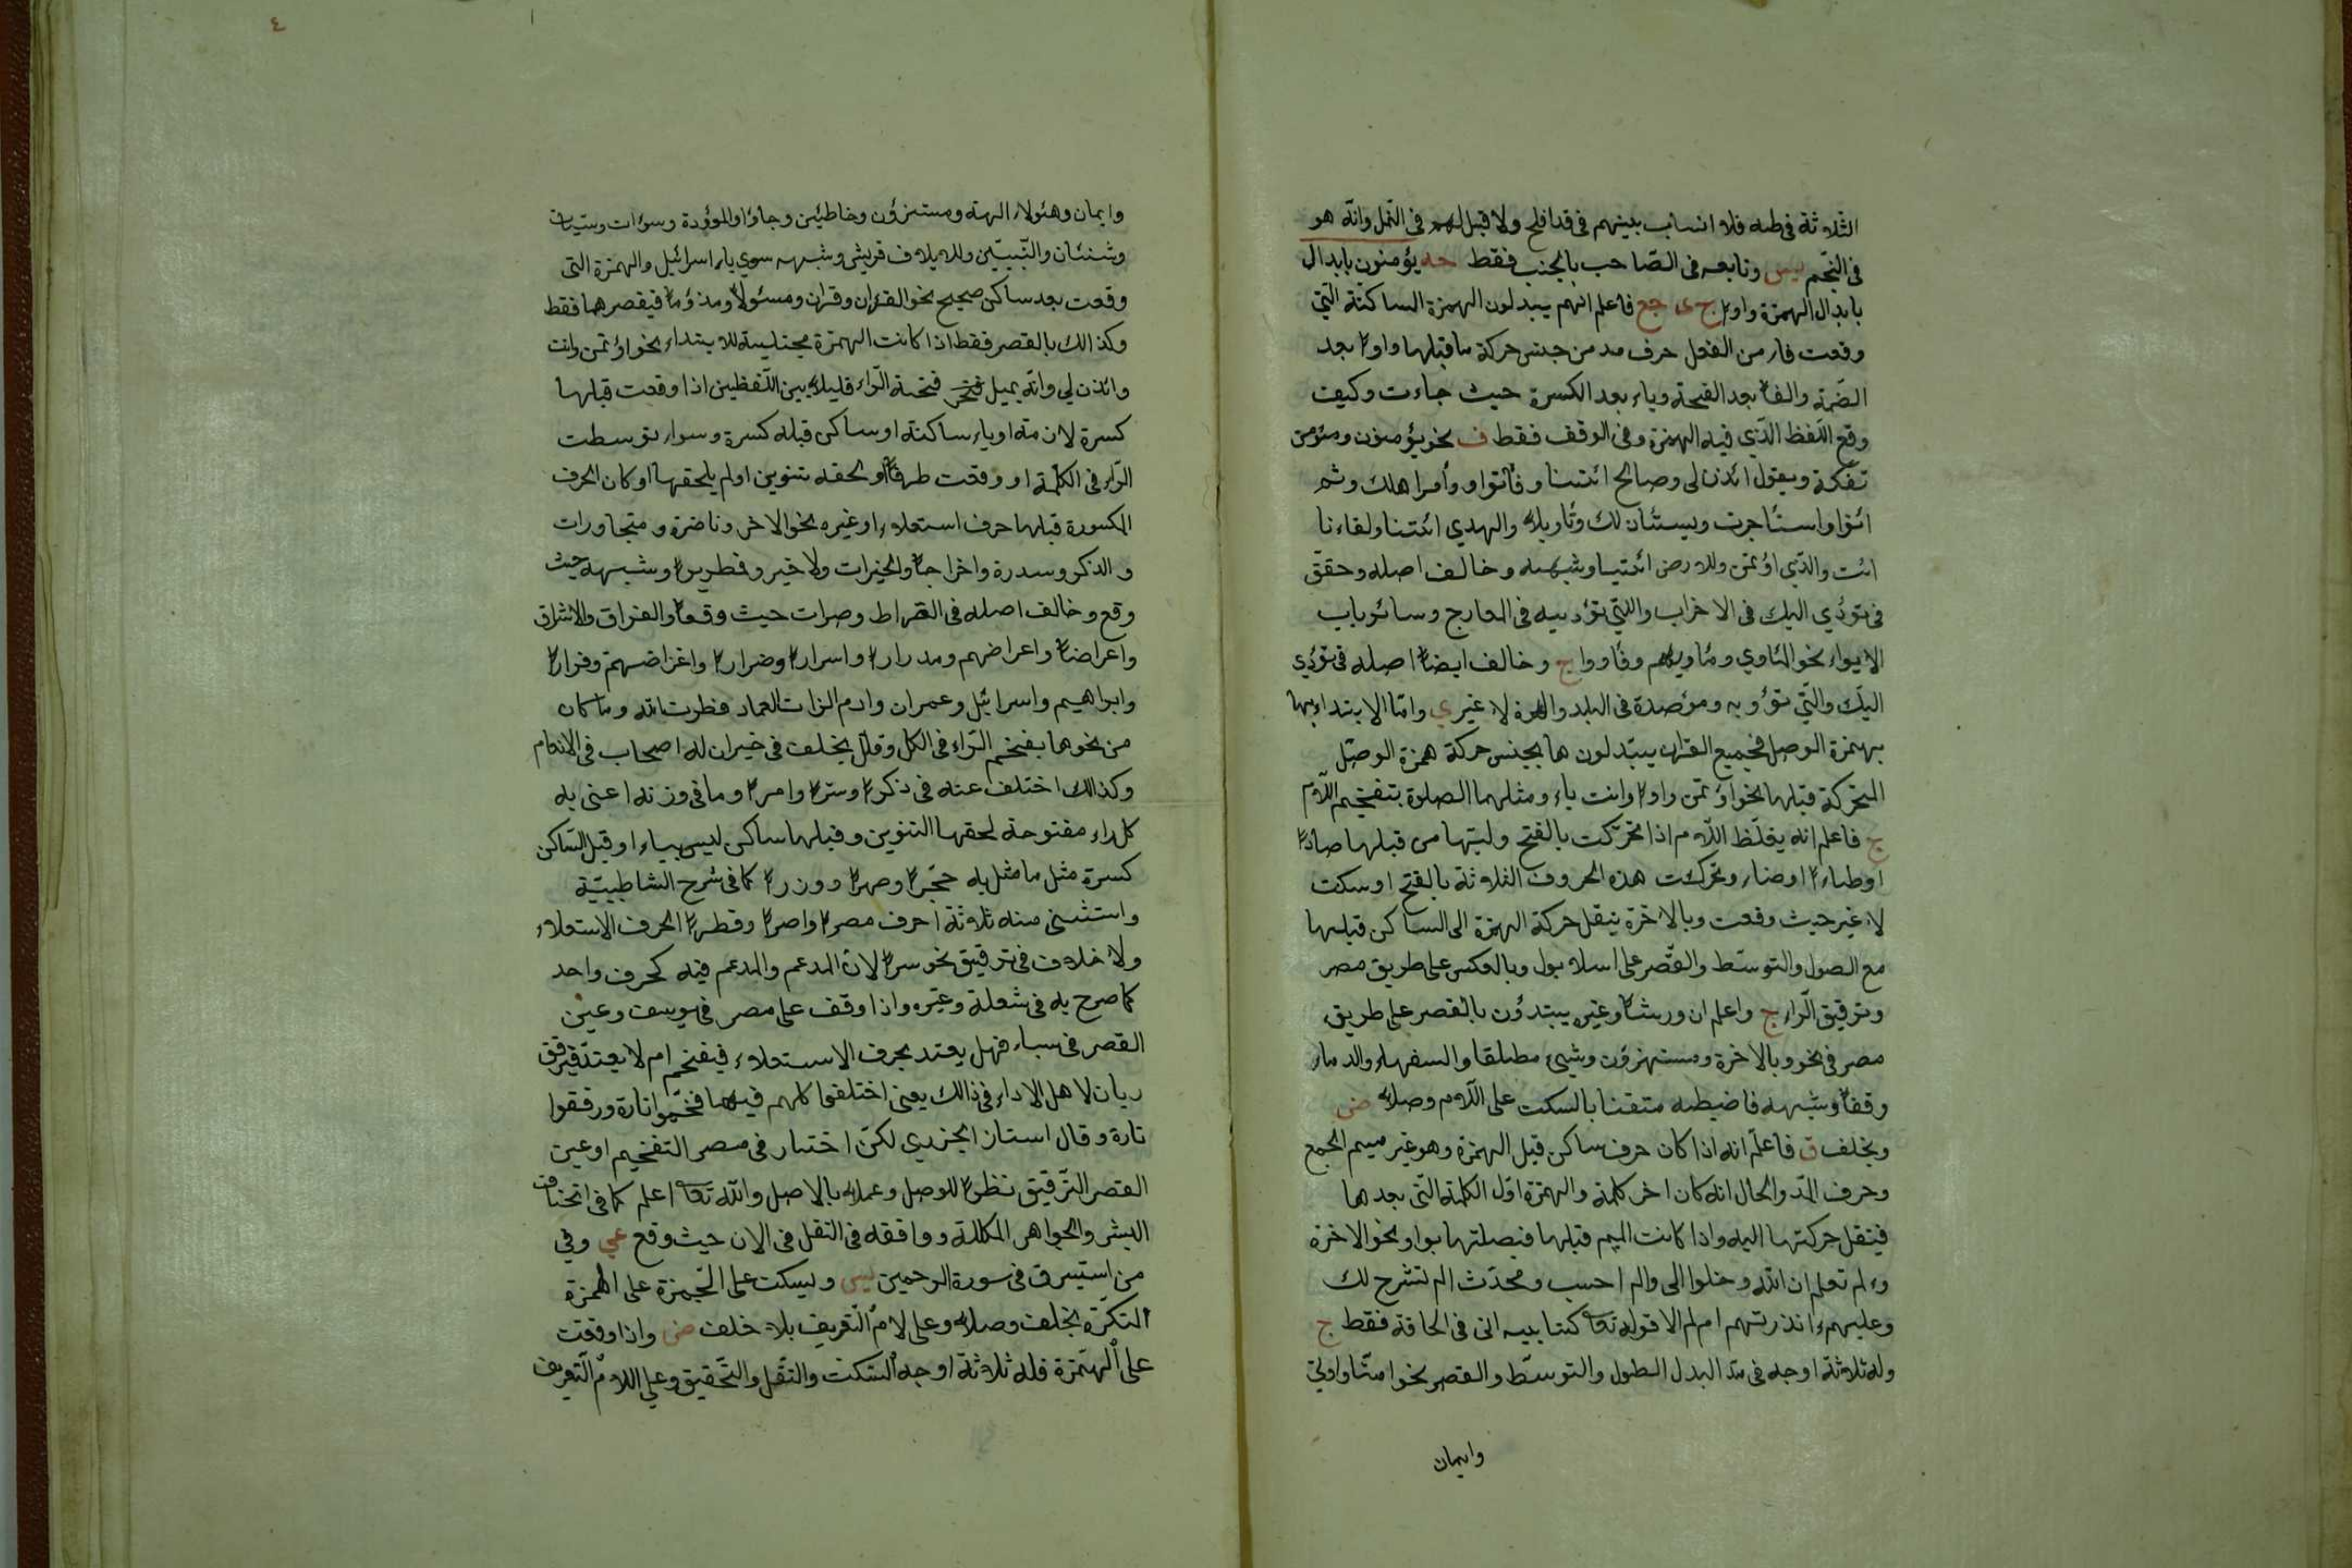 الثلاثة في طه فلا انساب بينهم في قد افلح ولا قبل لهم في النمل وانّه هو
في النّجم يس وتابعه في الصّاحب بالجنب فقط حه يؤمنون بابدال
بابدال الهمزة واوا ج ى جع فاعلم انهم يبدلون الهمزة الساكنة الّتي
وقعت فاء من الفعل حرف مد من جنس حركة ما قبلها واوا بعد
الضّمة والفا بعد الفتحة وياء بعد الكسرة حيث جاءت وكيف
وقع اللّفظ الّذي فيه الهمزة وفي الوقف فقط ف نحو يؤمنون ومؤمن
ويقول ائذن لي وصالح ائتنا وفأتوا وأمر اهلك وثم
ائتوا واستأجرت ويستئذنك وتأويلا والهدي ائتنا ولقاءنا
ائت والّذي اؤتمن وللارض ائتيا وشبهه وخالف اصله وحقّق
في تؤي اليك في الاحزاب والّتي تؤويه في المعارج وسائر باب
الايواء نحو المأوي ومأويهم وفأووا ج وخالف ايضا اصله في تؤي
اليك والّتي تؤويه ومؤصدة في البلد والهمزة لا غير ي وامّا الابتداء بها
بهمزة الوصل فجميع القران يبدلون ها بجنس حركة همزة الوصل
المتحركة قبلها نحو اؤتمن واوا وائت ياء ومثلهما الصلوة بتفخيم اللّام
ج فاعلم انه يغلّظ اللّام اذا تحرّكت بالفتح وليتها من قبلها صادا
او طاءا او ظاء وتحركت هذه الحروف الثلاثة بالفتح او سكت
لا غير حيث وقعت وبالاخرة ينقل حركة الهمزة الى الساكن قبلها
مع الطول والتوسّط والقصر على اسلامبول وبالعكس على طريق مصر
وترقيق الّراء ج واعلم ان ورشا وغيره يبتدؤن بالقصر على طريق
مصر في نحو وبالاخرة ومستهزؤن وشيئ مطلقا والسفهاء والدماء
وقفا وشبهه فاضبطه متقنا بالسكت على اللّام وصلا ض
وبخلف ق فاعلم انه اذا كان حرف ساكن قبل الهمزة وهو غير ميم الجمع
وحرف المدّ والحال انه كان اخر كلمة والهمزة اوّل الكلمة الّتي بعدها
فينقل حركتها اليه واذا كانت الميم قبلها فيصلتها بواو نحو الاخرة
والم تعلم ان الله وخلوا الى والم احسب ومحدّث الم نشرح لك
وعليهم ءانذرتهم ام لم الا قوله تعا كتابيه اني في الحاقة فقط ج
وله ثلاثة اوجه في مدّ البدل الطول والتوسّط والقصر نحو امنّا واوتي
وايمان
٤
وايمان وهئولاء الهة ومستهزؤن وخاطئين وجاؤا والموؤدة وسوءات وسيّئات
وشنئان والنّبيّين ولايلاف قريش وشبهه سوي ياء اسرائيل والهمزة الّتي
وقعت بعد ساكن صحيح نحو القران وقران ومسئولا ومذؤما فيقصرها فقط
وكذالك بالقصر فقط اذا كانت الهمزة مجتلبة للابتداء نحو اؤتمن وائت
وائذن لي وانّه يميل فتحة الّراء قليلا بين اللّفظين اذا وقعت قبلها
كسرة لازمة او ياء ساكنة او ساكن قبله كسرة وسواء توسطت
الرّاء في الكلمة او وقعت طرفا او لحقه تنوين او لم يلحقها او كان الحرف
المكسورة قبلها حرف استعلاء او غيره نحو الاخر وناضرة ومتجاورات
والذكر وسدرة واخراجا والخيرات ولا خير وقطريرا وشبهه حيث
وقع وخالف اصله في الصراط وصراط حيث وقعا والفراق والاشراق
واعراضا واعراضهم ومدرارا واسرارا وضرارا واعراضهم وفرارا
وابراهيم واسرائيل وعمران وارم الذات العماد فطرت الله وما كان
من نحوها بفخم الرّاء في الكل وقلل بخلف في حيران له اصحاب في الانعام
وكذالك اختلف عنه في ذكرا وسترا وامرا وما في وزنه اعني به
كل راء مفتوحة لحقها التنوين وقبلها ساكن ليس بياء او قبل السّاكن
كسرة مثل ما مثل به حجرا وصهرا ووزرا كما في شرح الشاطبيّة
واستثنى منه ثلاثة احرف مصرا واصرا وقطرا الحرف الاستعلاء
ولا خلاف في ترقيق نحو سرا لان المدغم والمدغم فيه كحرف واحد
كما صرح به في شعلة وغيره واذا وقف على مصر في يوسف وعين
القصر في سباء فهل يعتد بحرف الاستعلاء فيفخم ام لا يعتدّ فيرقق
ريان لاهل الاداء في ذالك يعني اختلفوا كلهم فيهما فخّموا تارة ورققوا
تارة وقال استاذ الجزري لكن اختار في مصر التفخيم او عين
القصر التّرقيق نظرا للوصل وعملا بالاصل والله تعا اعلم كما في اتحاف
البشر والجواهر المكللة ووافقه في النقل في الان حيث وقع عي وفي
من استبرق في سورة الرحمن يس ويسكت على الهمزة
بخلف وصلا وعلى لام التّعريف بلا خلف ض واذا وقفت
على الهمزة فله ثلاثة اوجه السّكت والنّقل والتّحقيق وعلى اللام التّعريف